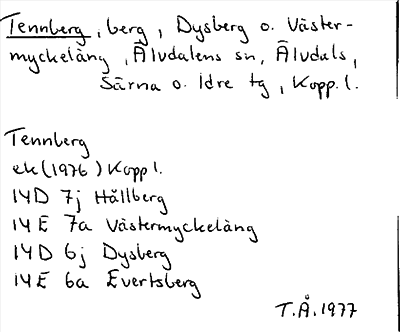 Tennberg, berg, Dysberg o. Väster-
myckeläng, Älvdalens sn, Älvdals,
Särna o. Idre tg, Kopp. l.
Tennberg
ek (1976) Kopp l.
14D 7j Hällberg
14E 7a Västermyckeläng
14D 6j Dysberg
14E 6a Evertsberg
T.Å. 1977